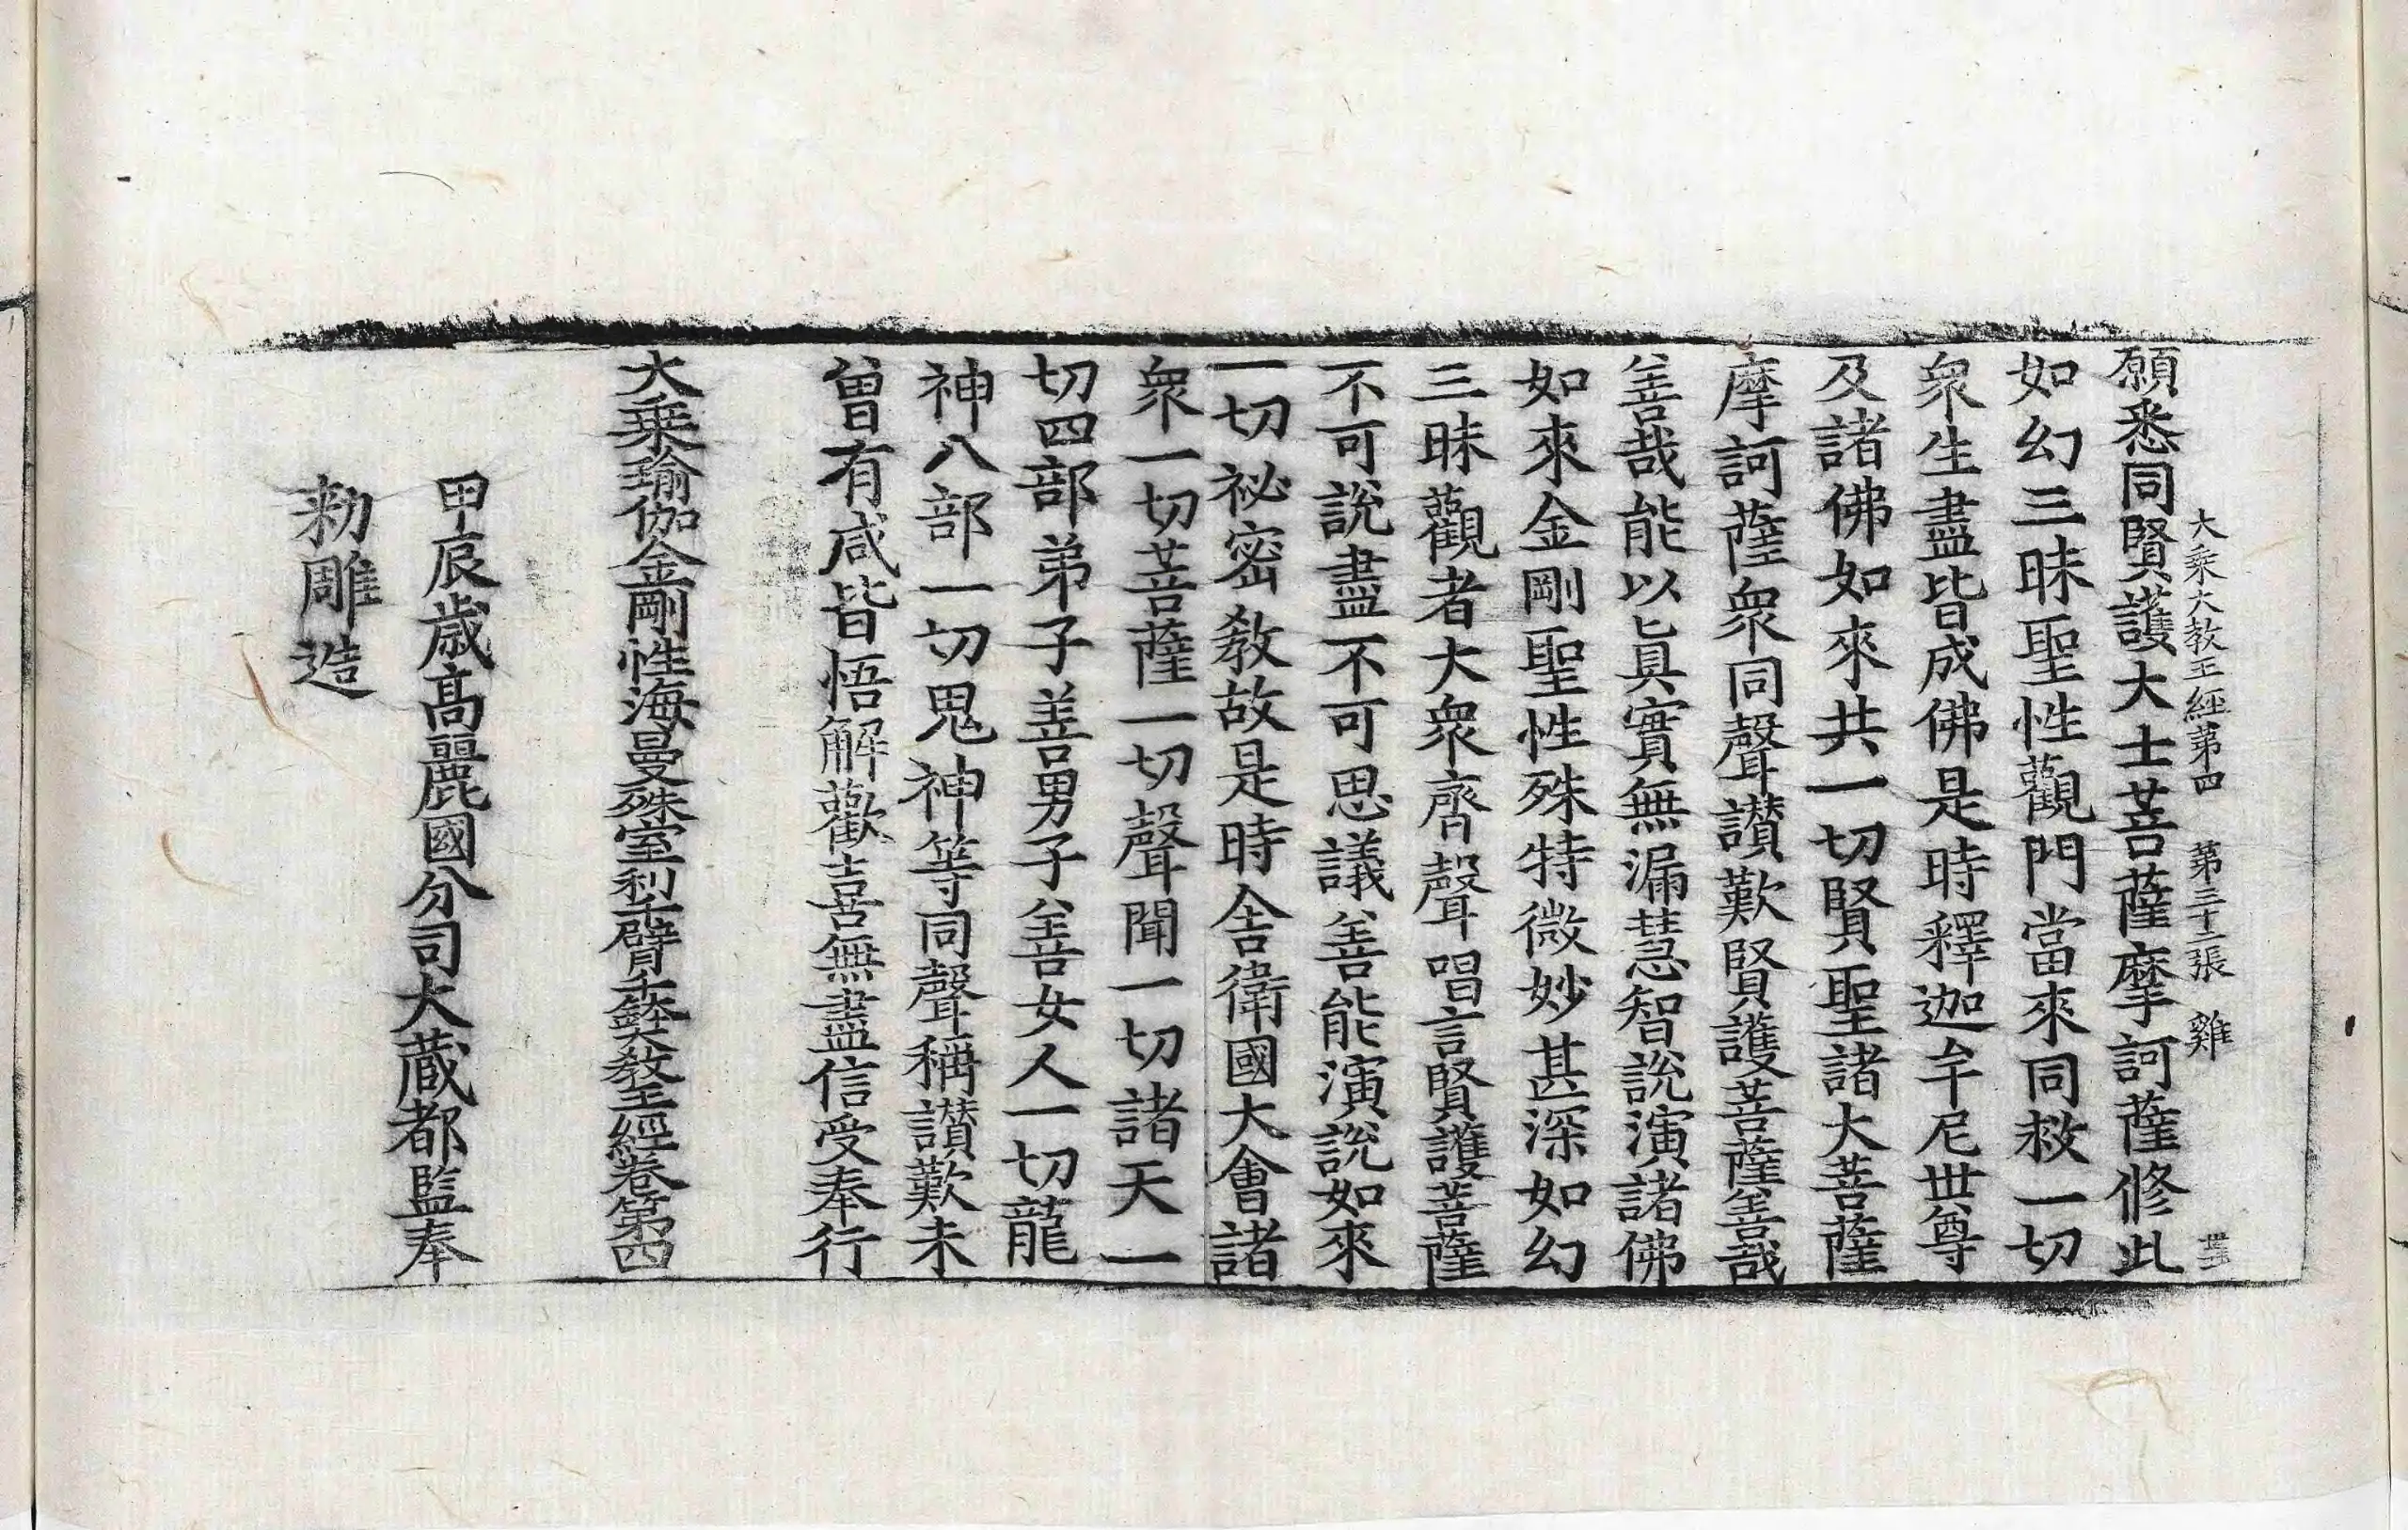 大乘大教王經第四　第三十二張　雞
願悉同賢護大士菩薩摩訶薩修此
如幻三昧聖性觀門當來同救一切
衆生盡皆成佛是時釋迦牟尼世尊
及諸佛如來共一切賢聖諸大菩薩
摩訶薩衆同聲讃歎賢護菩薩善哉
善哉能以眞實無漏慧智說演諸佛
如來金剛聖性殊特微妙甚深如幻
三昧觀者大衆齊聲唱言賢護菩薩
不可說盡不可思議善能演說如來
一切祕密教故是時舍衛國大會諸
衆一切菩薩一切聲聞一切諸天一
切四部弟子善男子善女人一切龍
神八部一切鬼神等同聲稱讃歎未
曾有咸皆悟解歡喜無盡信受奉行
大乘瑜伽金剛性海曼殊室利千臂千鉢大教王經卷第四
甲辰歲高麗國分司大藏都監奉
勑雕造